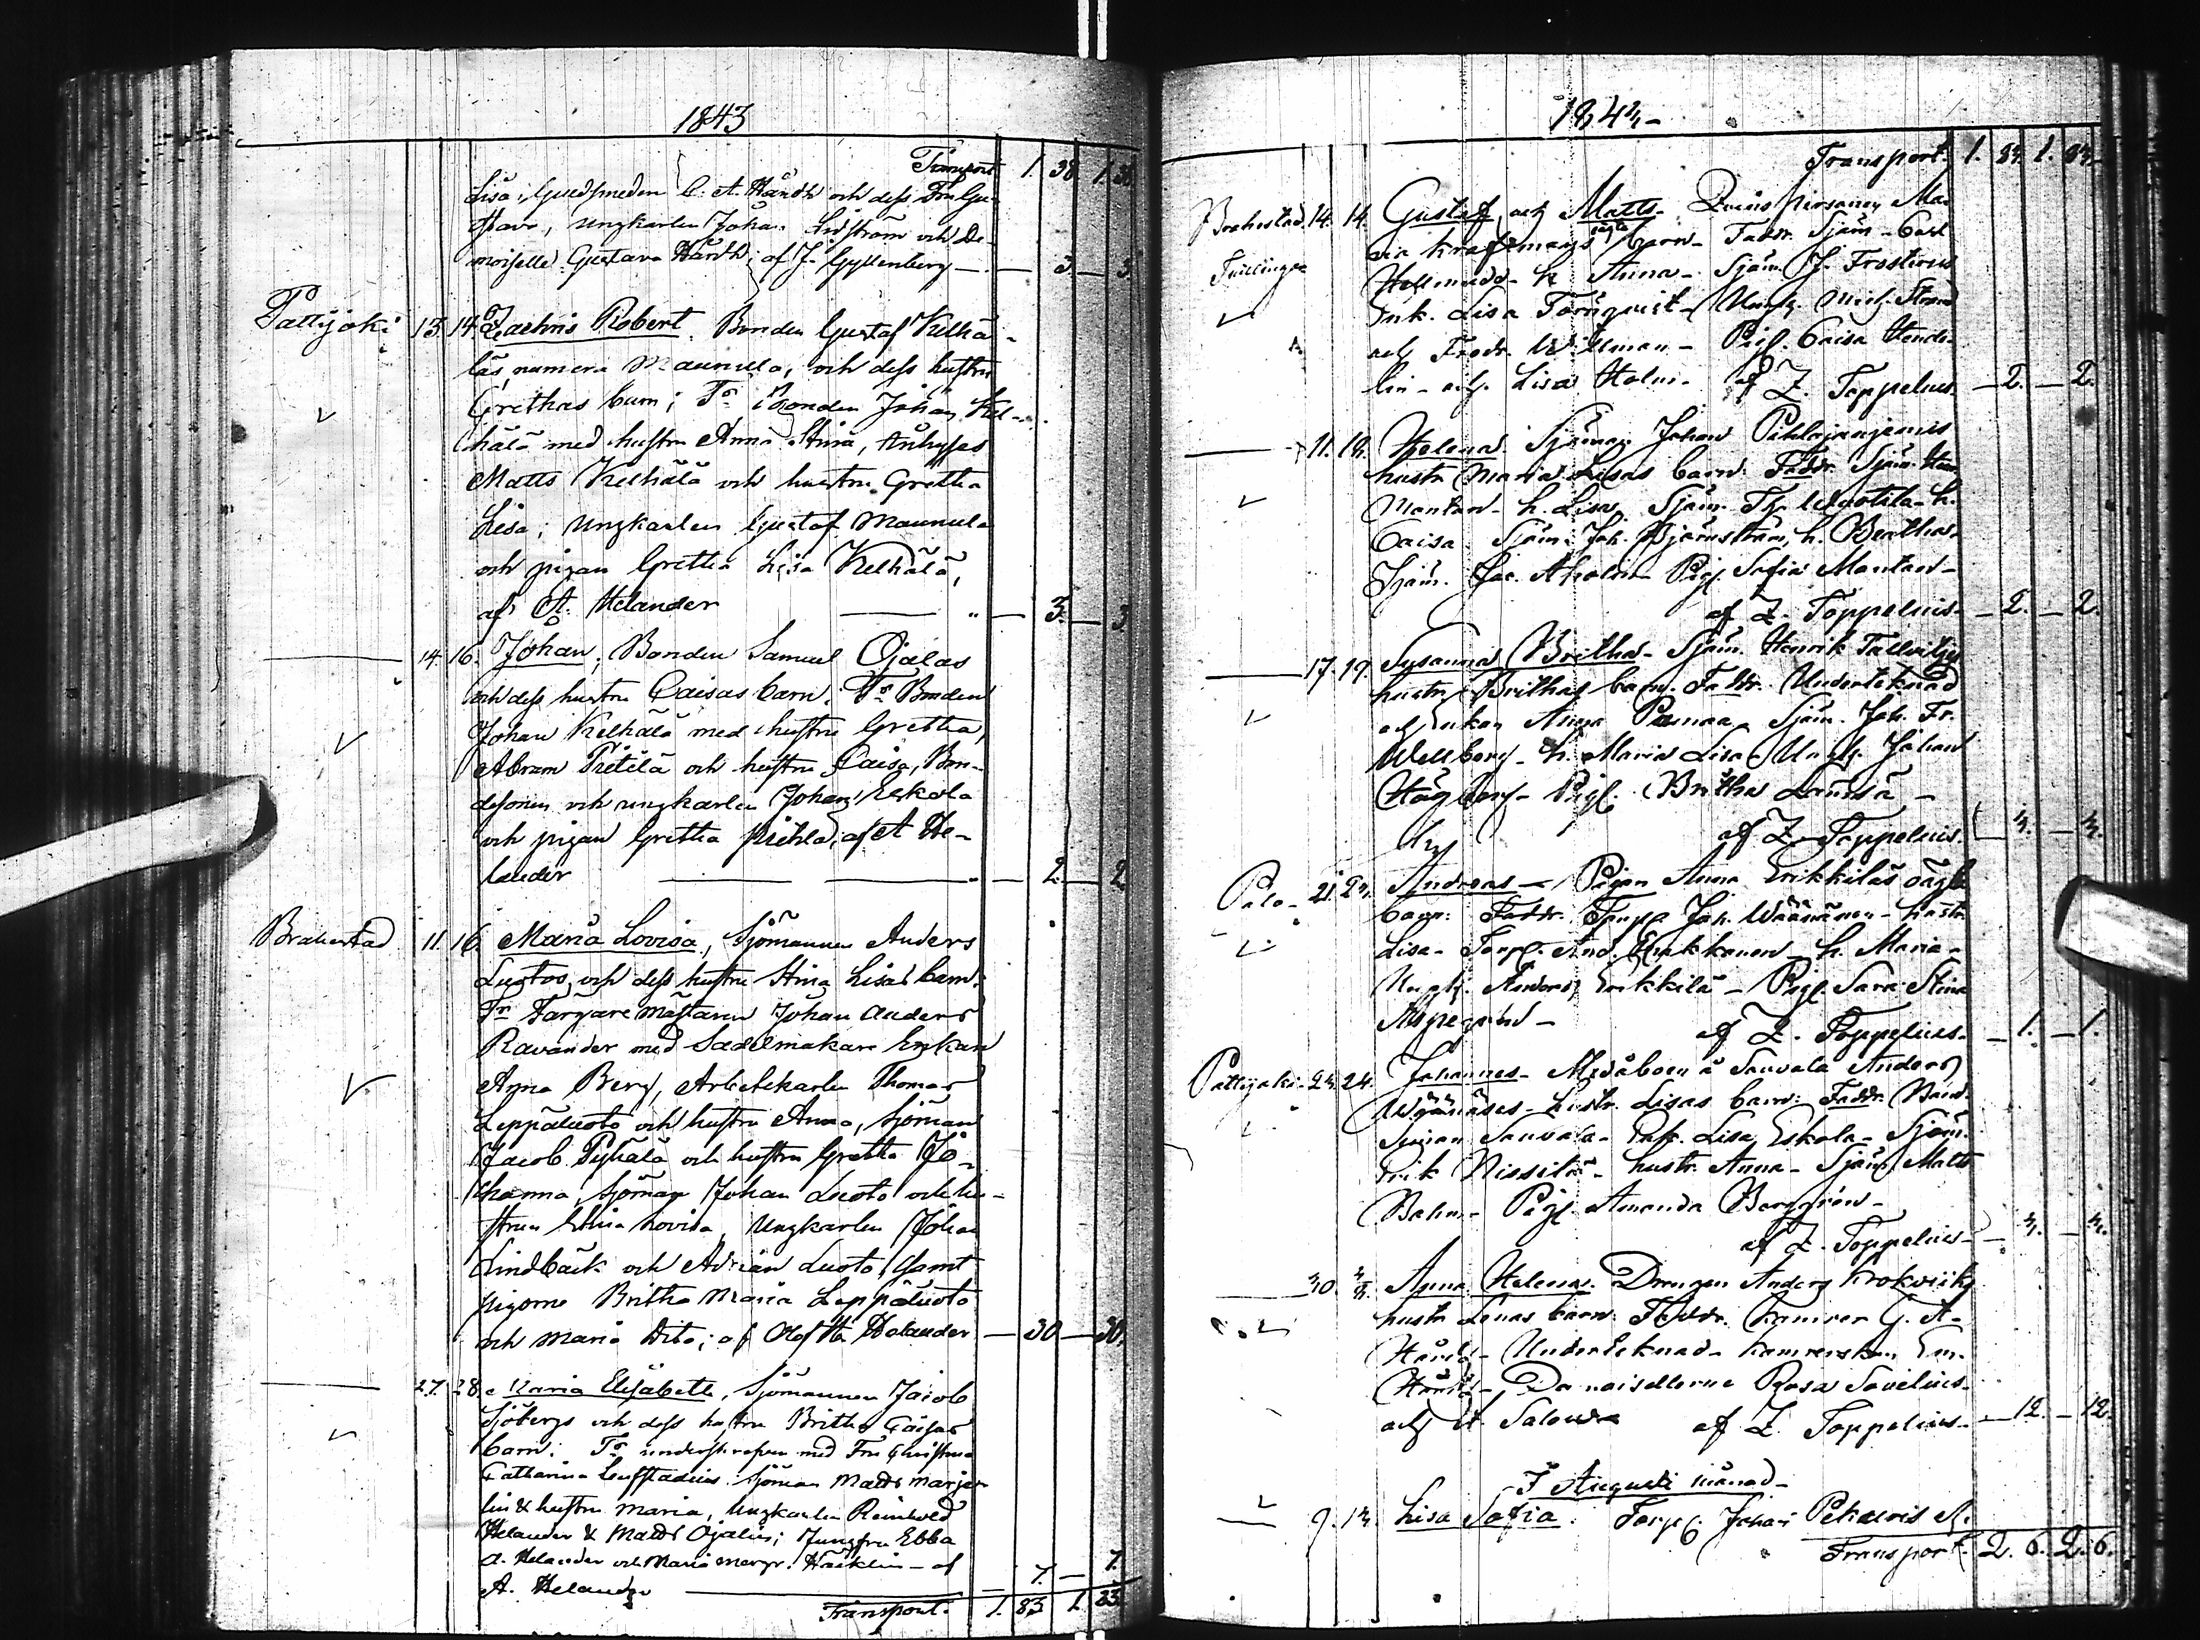 1843
Transport 1. 38 1. 38
Lisa; Guldsmeden C. A. Hårdh och dess Fru Gu-
stava, ungkarlen Johan Lidström och De-
moiselle Gustava Hårdh; af J. Gyllenberg — 3. — 3.
Pattijoki 13. 14. Zachris Robert, Bonden Gustaf Kelhä-
läs, numera Maunula, och dess hustru
Grethas barn; Fr Bonden Johan Kel-
hälä med hustru Anna Stina, Inhyses
Matts Kelhälä och hustru Gretha
Lisa; ungkarlen Gustaf Maunula
och pigan Gretha Lisa Kelhälä,
af A. Helander — 3. — 3.
14. 16. Johan, Bonden Samuel Ojalas
och dess hustru Caisas barn. Fr Bonden
Johan Kelhälä med hustru Gretha,
Abram Pietilä och hustru Caisa, Bon-
desonen och ungkarlen Johan Eskola
och pigan Gretha Pichla; af A. He-
lander — 2. — 2.
Brahestad 11. 16. Maria Lovisa, Sjömannen Anders
Luotos och dess hustru Stina Lisas barn.
Fr Färgare mästaren Johan Anders
Ravander med Sadelmakare Enkan
Anna Berg, Arbetskarlen Thomas
Leppäluoto och hustru Anna, Sjöman
Jacob Pyhälä och hustru Gretha Jo-
hanna, Sjöman Johan Luoto och hu-
strun Stina Lovisa, Ungkarlen Johan
Lindbäck och Adrian Luoto, samt
pigorne Britha Maria Leppäluoto
och Maria Dito; af Olof H. Helander — 30 — 30.
27. 28. Maria Elisabeth, Sjömannen Jacob
Sjöbergs och dess hustru Britha Caisas
barn: Fr underskrefven med Fru Christina
Catharina Leufstadius, Sjöman Matts Marje-
lin & hustru Maria, Ungkarlen Reinhold
Helander & Matts Ojalin; Jungfru Ebba
A. Helander och Maria Margr. Häcklin — af
A. Helander — 7. — 7.
Transport. 1. 83 1. 83.
1843.
Transport. 1. 83. 1. 83.
Brahestad 14. 14. Gustaf och Matts. Ma-
ria Krafsmans oägta barn. Faddr. Sjöm. Carl
h. Anna. Sjöm. J. Frosterus
Enk. Lisa Törnqvist. Ungk. Mich. Strand
Tvillingar
och Fredr. Willman. Pig. Caisa Hende-
lin och Lisa Holm. af Z. Toppelius — 2. — 2.
11. 13. Helena. Sjöman Johan Pihlajaniemis
hustr Maria Lisas barn. Faddr. Sjöm.
Montan. h. Lisa. Sjöm. h.
Caisa. Sjöm. Joh. Björnström, h. Beatha.
Sjöm. Jac. Aholm. Pig. Sofia Montan.
af Z. Toppelius. — 2. — 2.
17. 19. Susanna Britha. Sjöm. Henrik Tallvitjes
hustr. Brithas barn. Faddr. Undertecknad
och Enkan Anna Sjöm. Joh. Fr.
Wellberg. h. Maria Lisa. Ungk. Johan
Högberg. Pig. Britha
af Z. Toppelius. 3. — 3.
Palo- 21. 23. Andreas — Pigan Anna Erikkiläs oägta
barn: Faddr. Torpp Joh. Wäänänen. hustr.
Lisa. Torp. And. h. Maria.
Ungk. Anders Erikkilä — Pig. Sara Stina
Aspegrén — af Z. Toppelius. — 1. — 1.
Pattijoki. 23. 24. Johannes. Medåboen å Sauvala Anders
Wäänäses. hustr. Lisas barn: Faddr. Bond.
Simon Sauvala. Enk. Lisa Eskola. Sjöm.
Erik Nissilä. hustr. Anna. Sjöm. Matts
Bahm. Pig. Amanda Berggrén.
af Z. Toppelius — 3. — 3.
30. Anna Helena. Drengen Anders Krokviiks
hustr Lenas barn. Faddr. Kamrer G. A.
Hårdh. Undertecknad. Kamrerskan Em.
Hårdh. Demoisellerne Rosa Savelius.
och A. af Z. Toppelius. — 12. — 12.
I Augusti månad.
9. 13. Lisa Sofia. Torp. Johan
Transport. 2. 6. 2. 6.